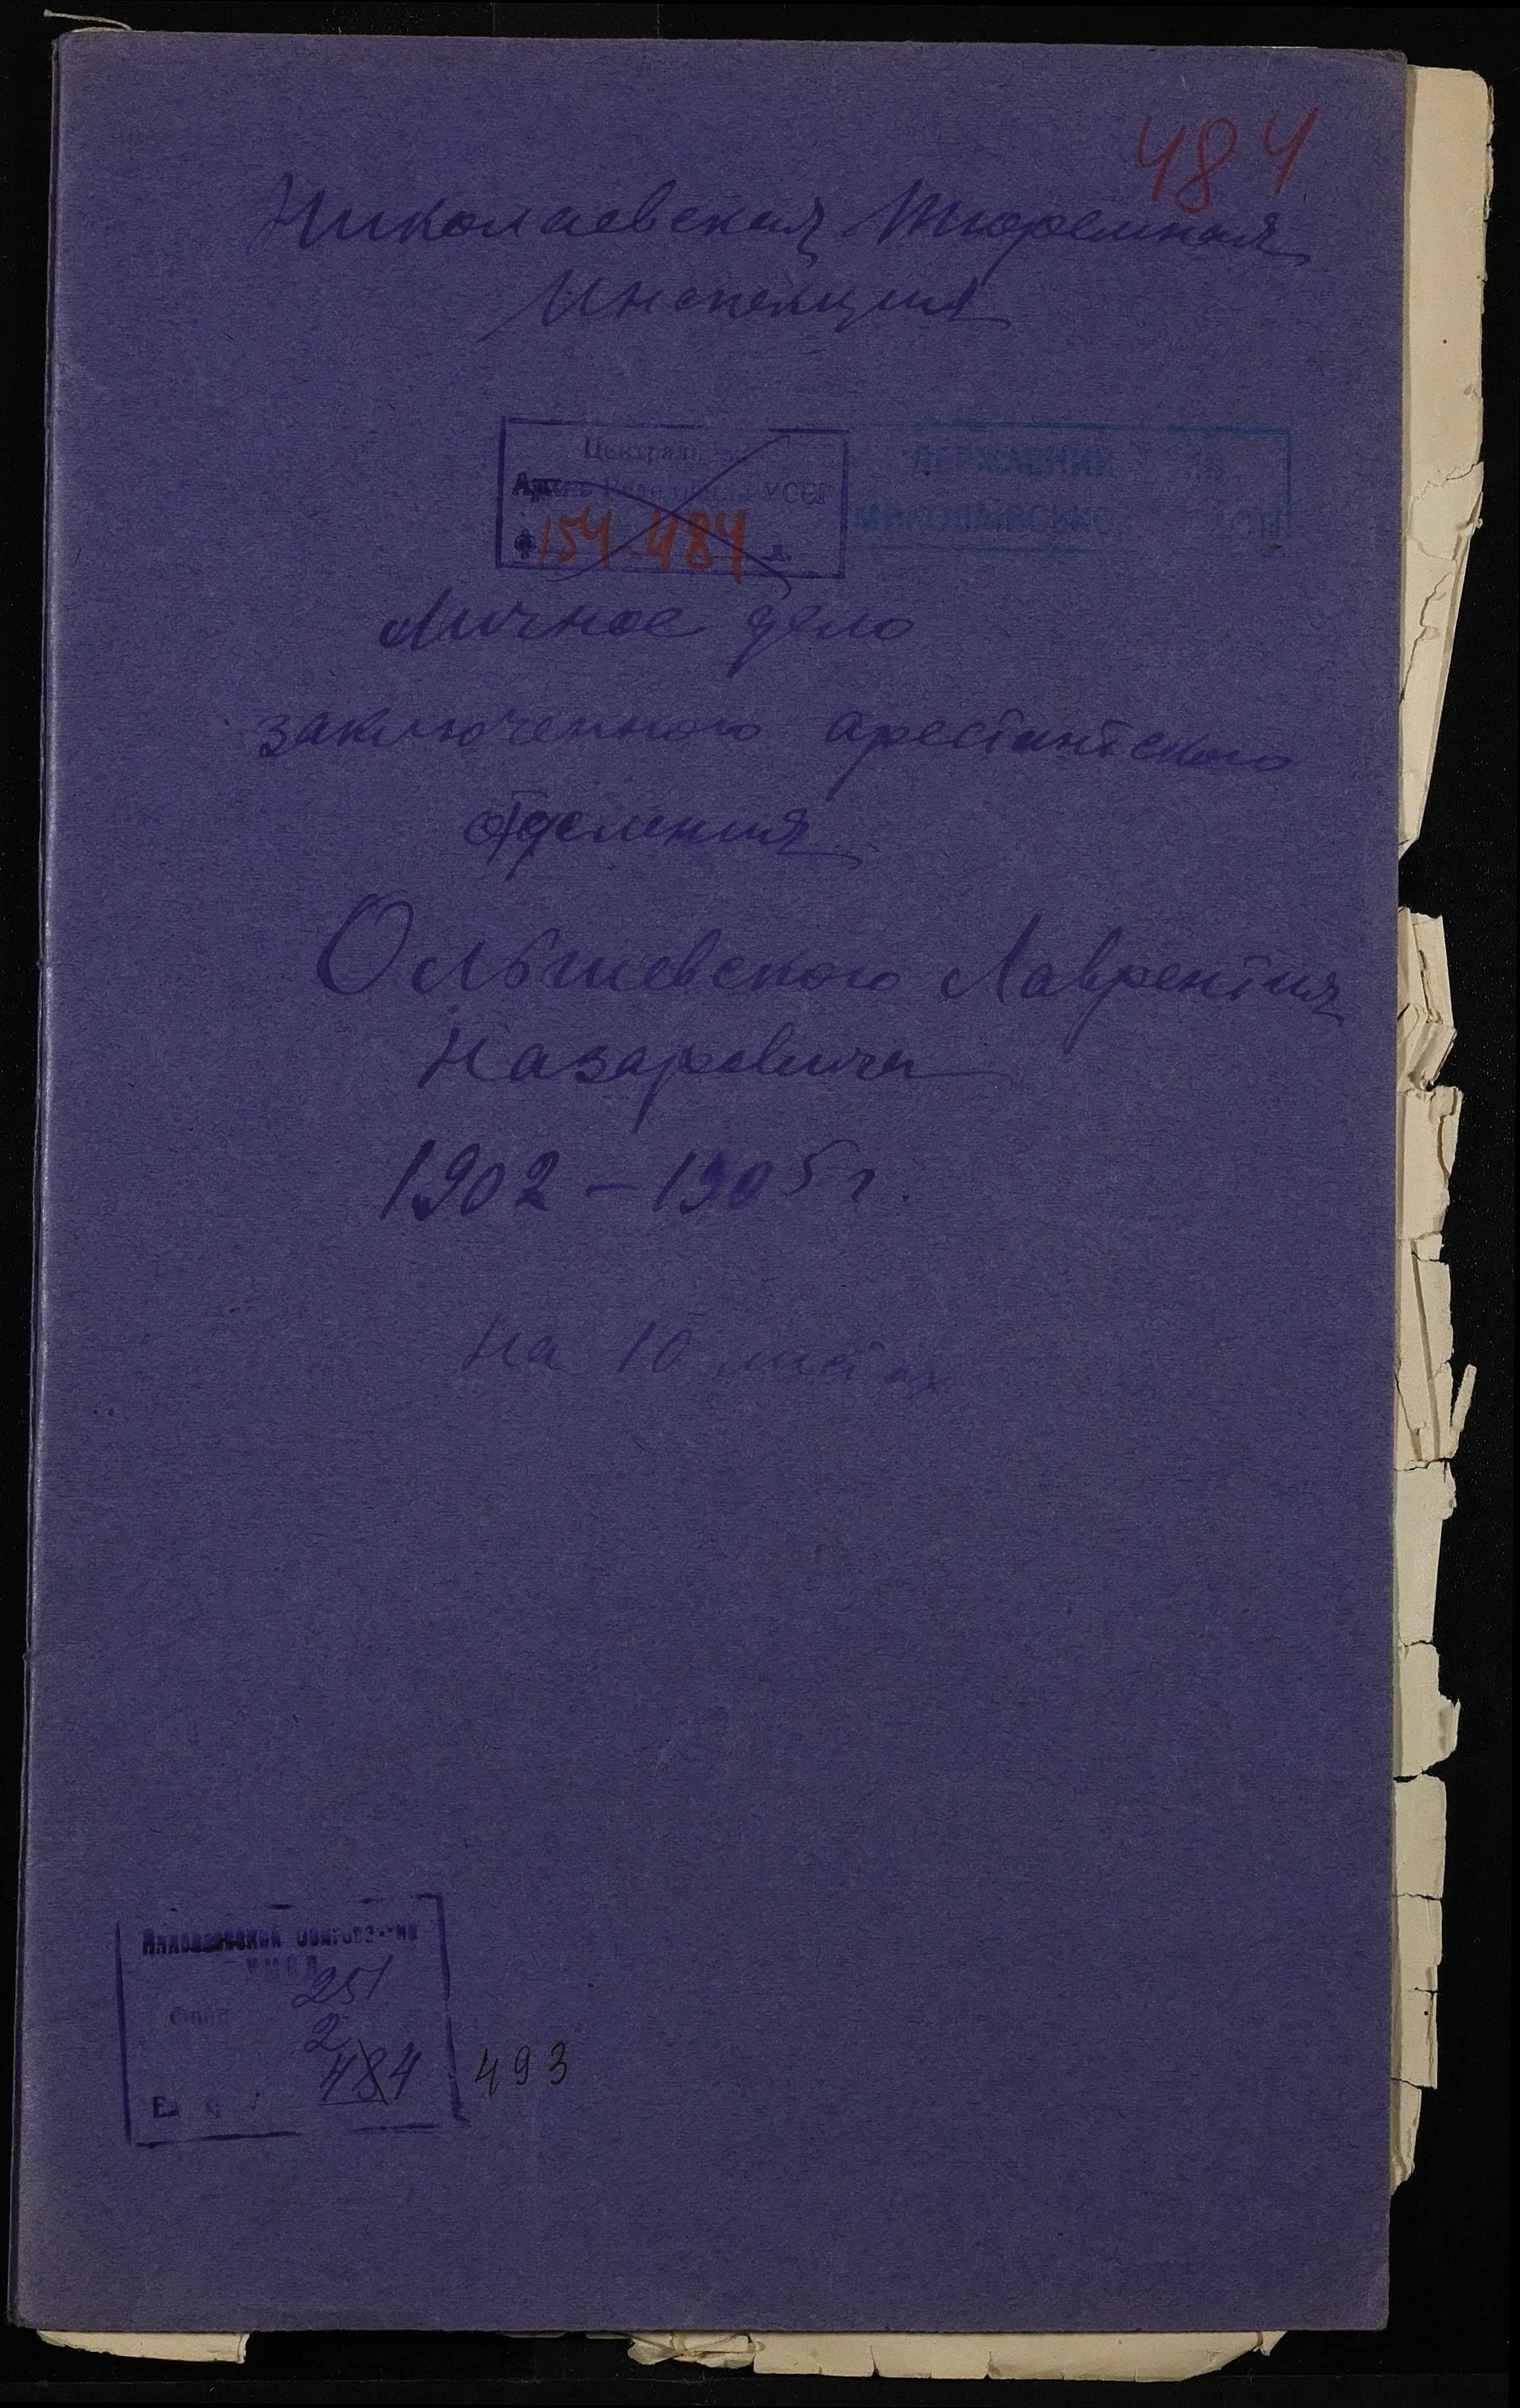 484
Николаевская Тюремная
Инспекция
Централь
УССР
Ф 154 484 д.
ДЕРЖАВНИЙ
МИКОЛАЇВСЬКО
Личное дело
заключенного арестантского
отделения
Ольшевского Лаврентия
Назаровича
1902 – 1905 г.
На 10 листах
Николаевский
251
Фонд
2
484 493